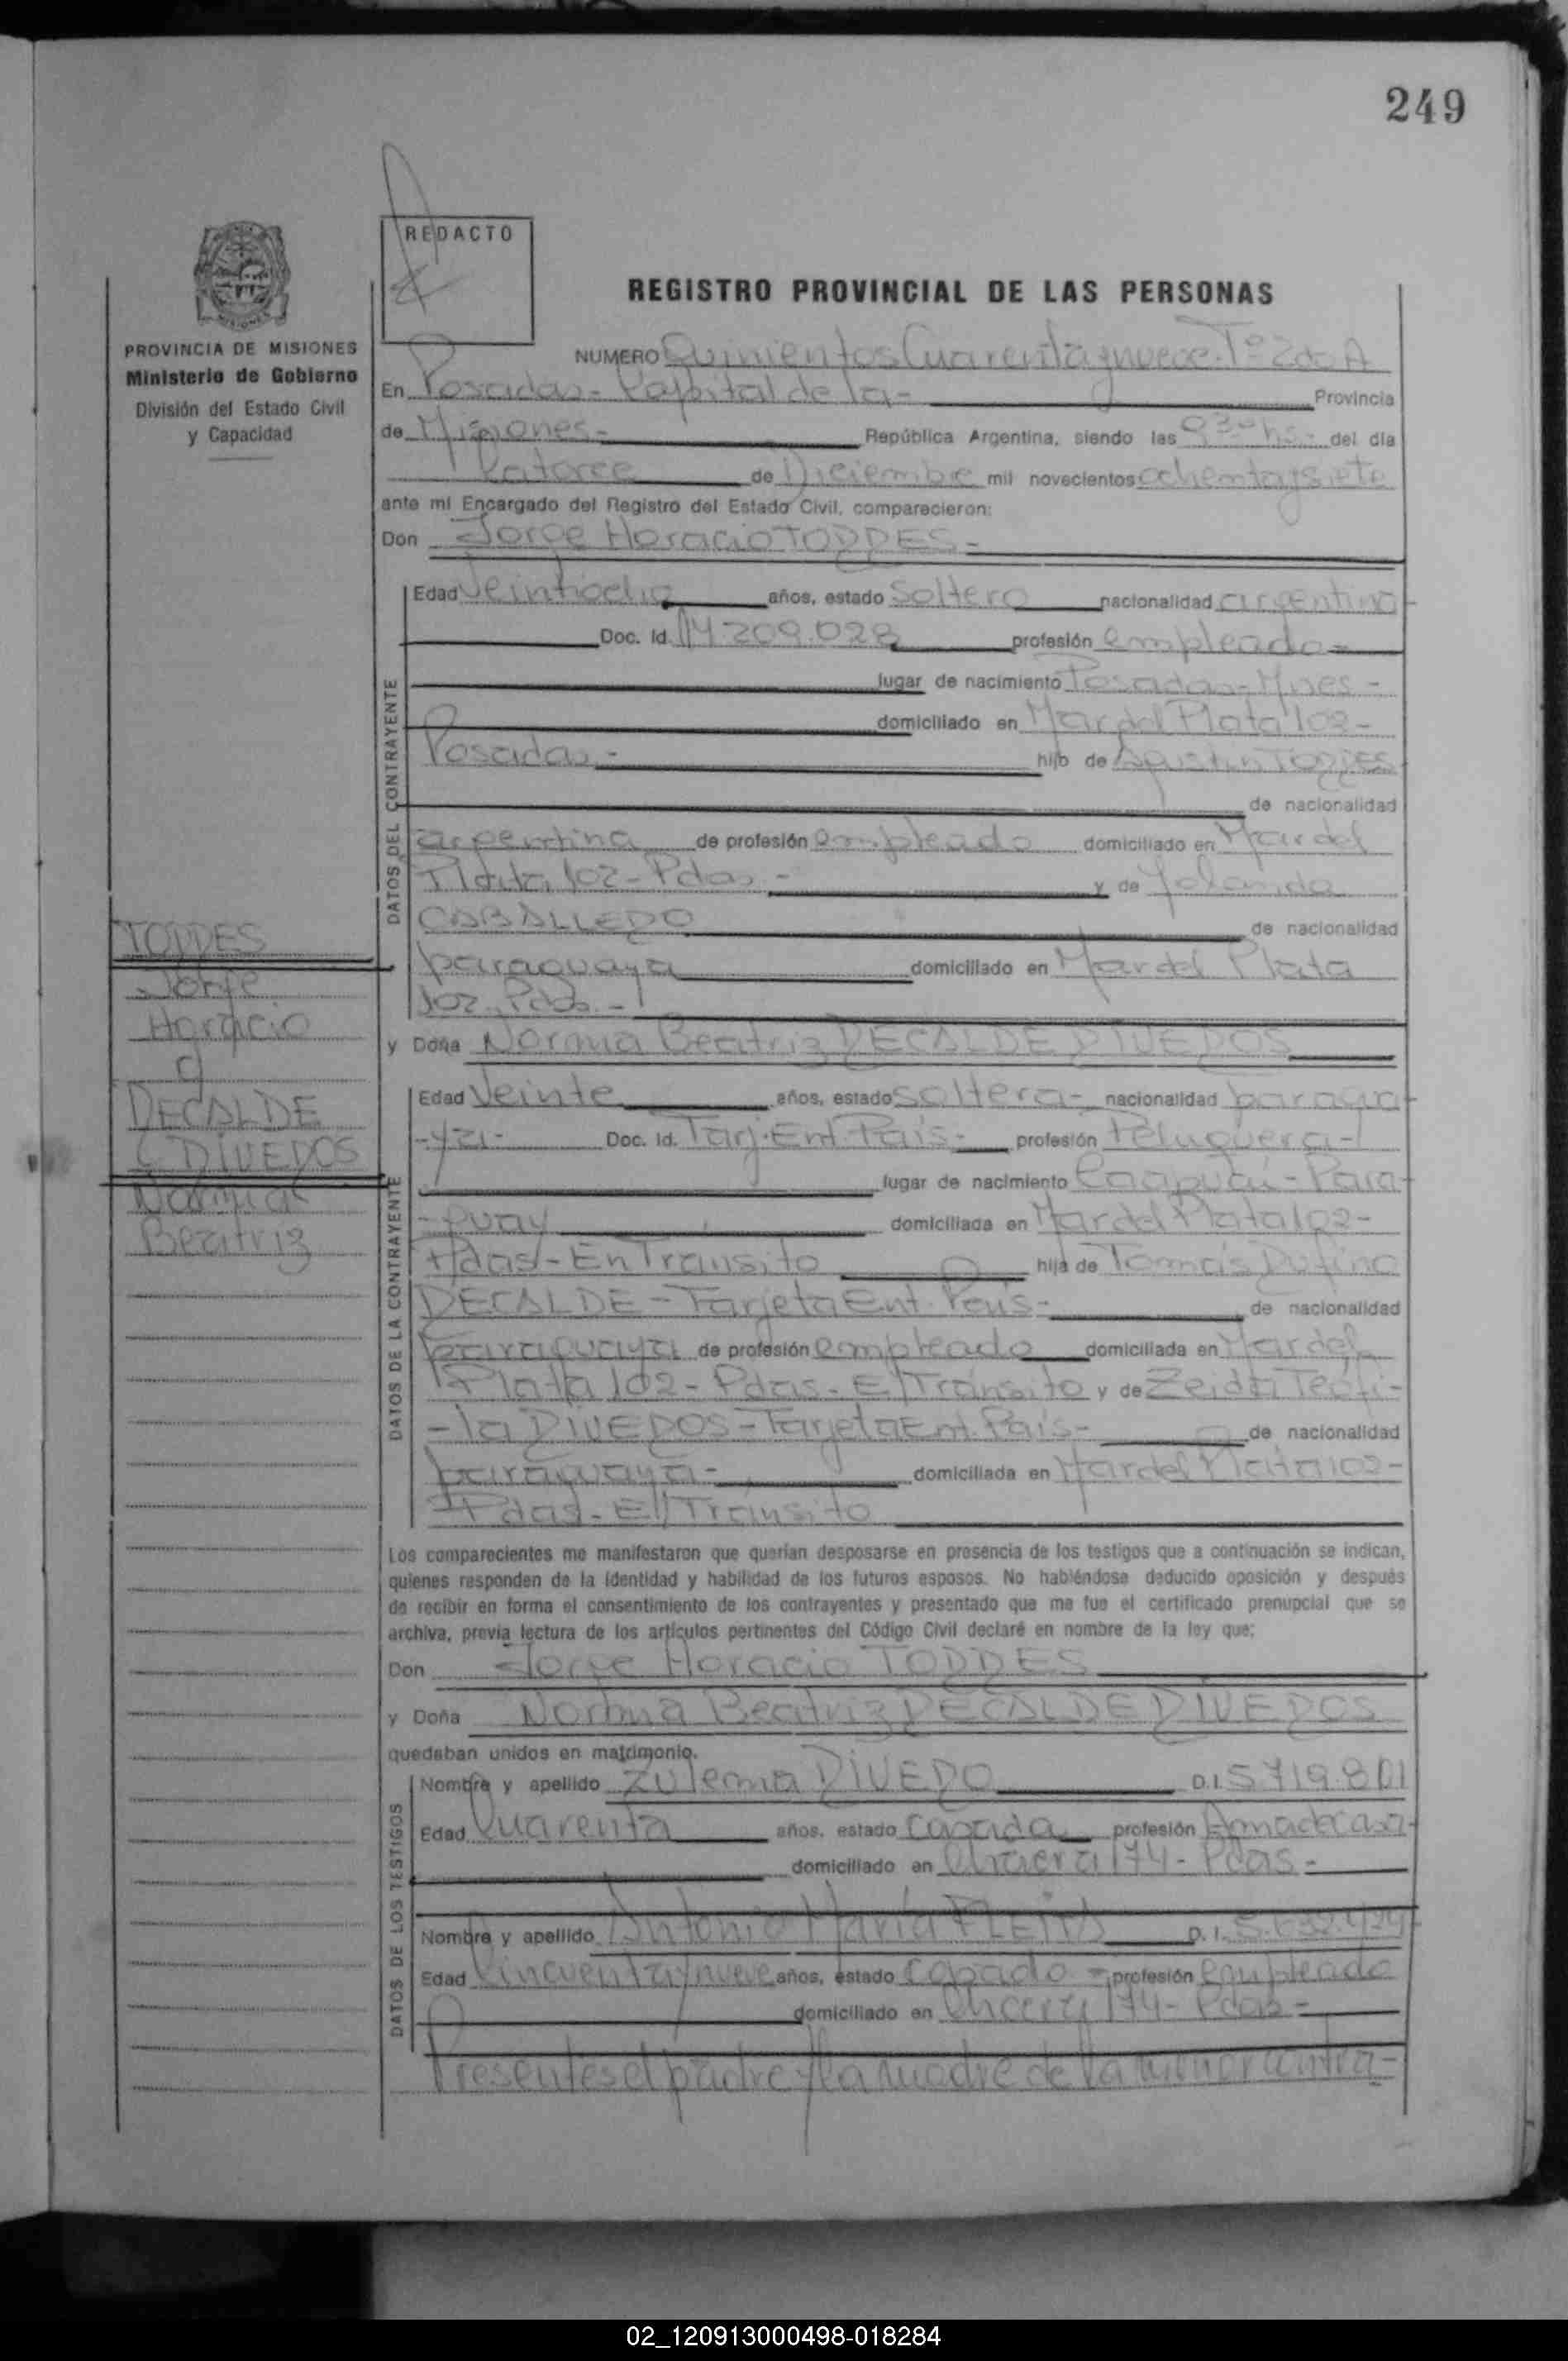 249
REDACTO
REGISTRO PROVINCIAL DE LAS PERSONAS
PROVINCIA DE MISIONES
Ministerio de Gobierno
División del Estado Civil
y Capacidad
NUMERO Quinientos Cuarenta y nueve. Tº 2do A
En Posadas - Capital de la - Provincia
de Misiones - República Argentina, siendo las 9³⁰ hs - del día
Catorce de Diciembre mil novecientos ochenta y siete
ante mí Encargado del Registro del Estado Civil, comparecieron:
Don Jorge Horacio TORRES -
Edad Veintiocho años, estado soltero nacionalidad argentina
Doc. Id. 14.209.028 profesión empleado -
lugar de nacimiento Posadas - Mnes -
domiciliado en Mar del Plata 102 -
Posadas - hijo de Agustin TORRES
de nacionalidad
argentina de profesión empleado domiciliado en Mar del
Plata 102 - Pdas - y de Yolanda
CABALLERO de nacionalidad
paraguaya domiciliado en Mar del Plata
102 - Pdas. -
y Doña Norma Beatriz RECALDE RIVEROS
Edad Veinte años, estado soltera - nacionalidad paragua
-ya - Doc. Id. Tarj. Ent. País - profesión Peluquera -
lugar de nacimiento Caaguazú - Para-
-guay domiciliada en Mar del Plata 102 -
Pdas - En Tránsito hija de Tomás Rufino
RECALDE - Tarjeta Ent. País - de nacionalidad
paraguaya de profesión empleado domiciliada en Mar del
Plata 102 - Pdas - E/Tránsito y de Zeida Teófi-
-la RIVEROS - Tarjeta Ent. País - de nacionalidad
paraguaya - domiciliada en Mar del Plata 102 -
Pdas - E/Tránsito
Los comparecientes me manifestaron que querían desposarse en presencia de los testigos que a continuación se indican,
quienes responden de la identidad y habilidad de los futuros esposos. No habiéndose deducido oposición y después
de recibir en forma el consentimiento de los contrayentes y presentado que me fue el certificado prenupcial que se
archiva, previa lectura de los artículos pertinentes del Código Civil declaré en nombre de la ley que:
Don Jorge Horacio TORRES
y Doña Norma Beatriz RECALDE RIVEROS
quedaban unidos en matrimonio.
Nombre y apellido Zulema RIVERO D.I. 5719.801
Edad Cuarenta años, estado casada profesión Ama de casa
domiciliado en 174 - Pdas -
Nombre y apellido Antonio María FLEITAS D. I.
Edad Cincuenta y nueve años, estado casado - profesión empleado
domiciliado en 174 - Pdas -
Presentes el padre y la madre de la menor contra-
DATOS DEL CONTRAYENTE
DATOS DE LA CONTRAYENTE
DATOS DE LOS TESTIGOS
TORRES
Jorge
Horacio
y
RECALDE
RIVEROS
Norma
Beatriz
02_120913000498-018284